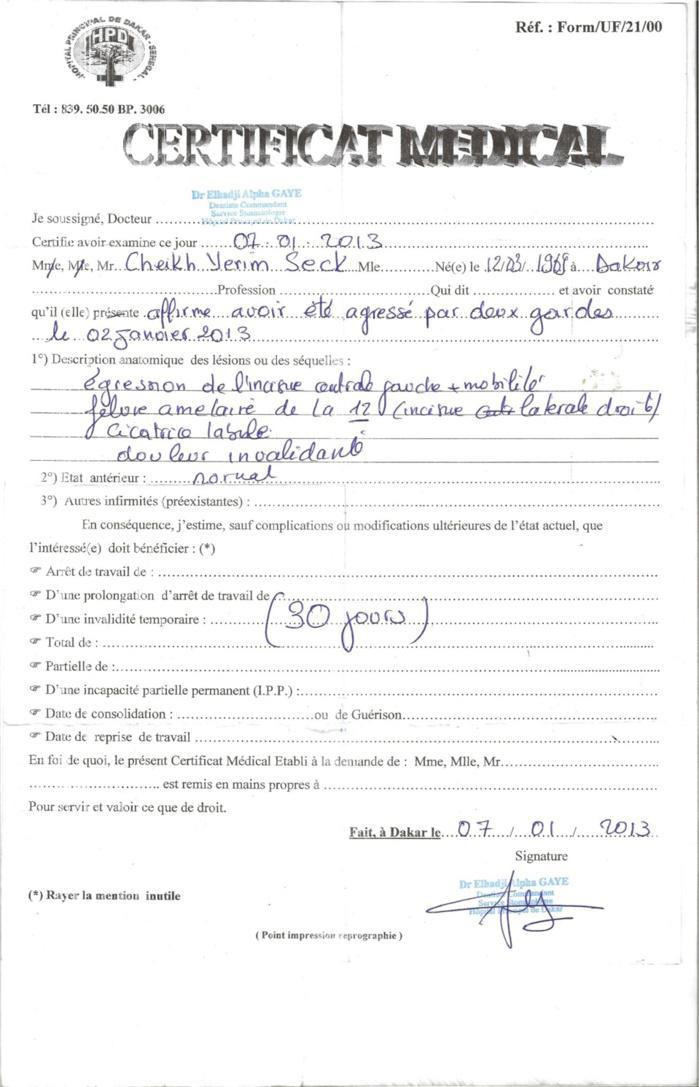 HOPITAL PRINCIPAL DE DAKAR - SENEGAL
HPD
Réf. : Form/UF/21/00
Tél : 839. 50.50 BP. 3006
CERTIFICAT MEDICAL
Dr Elhadji Alpha GAYE
Dentiste Commandant
Service Stomatologie
Hôpital Principal de Dakar
Je soussigné, Docteur
Certifie avoir examine ce jour 07 01 2013
Mme, Mlle, Mr. Cheikh Yerim Seck Mle Né(e) le 12/03/1969 à Dakar
Profession Qui dit et avoir constaté
qu'il (elle) présente affirme avoir été agressé par deux gardes
le 02 janvier 2013
1°) Description anatomique des lésions ou des séquelles :
égression de l'incisive centrale gauche + mobilité
fêlure amelaire de la 12 (incisive laterale droite)
cicatrice labiale
douleur invalidante
2°) Etat antérieur : normal
3°) Autres infirmités (préexistantes) :
En conséquence, j'estime, sauf complications ou modifications ultérieures de l'état actuel, que
l'intéressé(e) doit bénéficier : (*)
☞ Arrêt de travail de :
☞ D'une prolongation d'arrêt de travail de
☞ D'une invalidité temporaire : (30 jours)
☞ Total de :
☞ Partielle de :
☞ D'une incapacité partielle permanent (I.P.P.) :
☞ Date de consolidation : ou de Guérison
☞ Date de reprise de travail
En foi de quoi, le présent Certificat Médical Etabli à la demande de : Mme, Mlle, Mr.
est remis en mains propres à
Pour servir et valoir ce que de droit.
Fait, à Dakar le 07 / 01 / 2013
Signature
Dr Elhadji Alpha GAYE
Dentiste Commandant
Service Stomatologie
Hôpital Principal de Dakar
(*) Rayer la mention inutile
( Point impression reprographie )